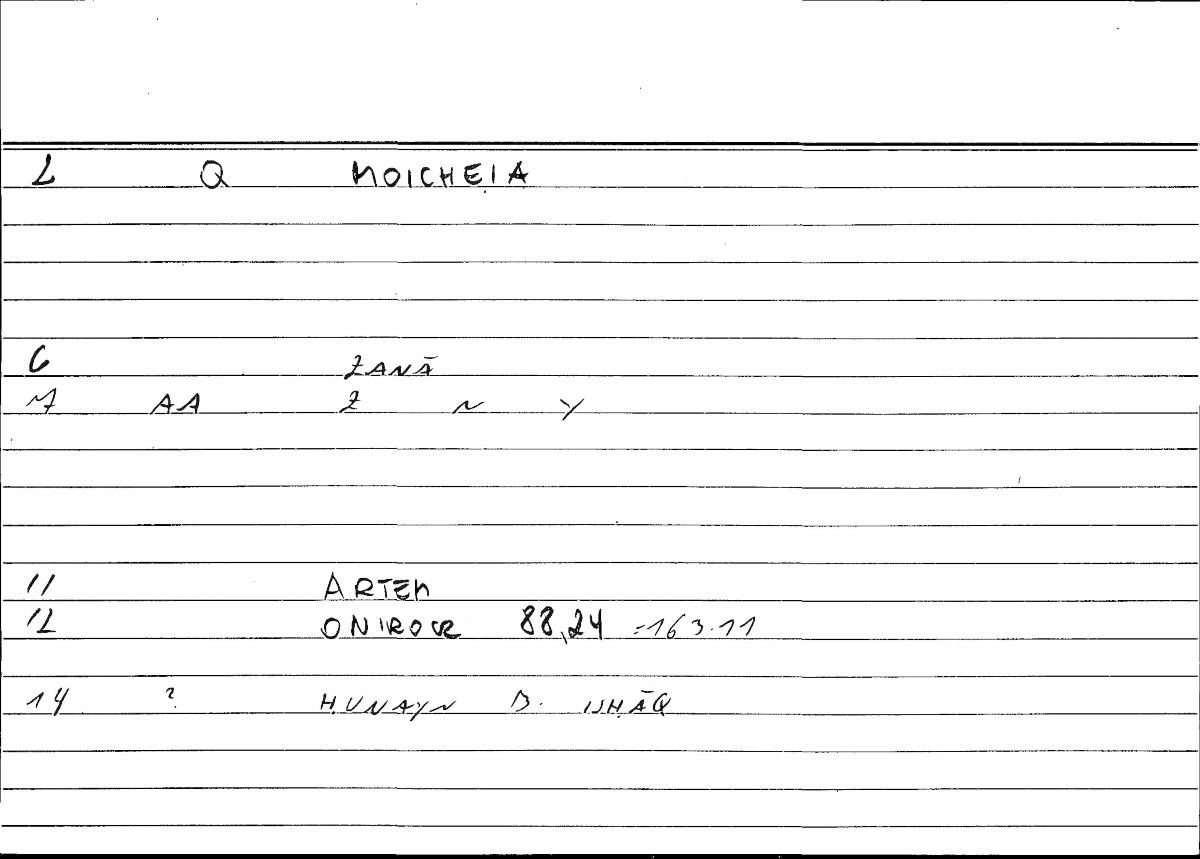 2 Q MOICHEIA
6 ZANĀ
7 AA Z N Y
11 ARTEM
12 ONIROCR 88,24 =163.11
14 ? ḤUNAYN B. ISḤĀQ